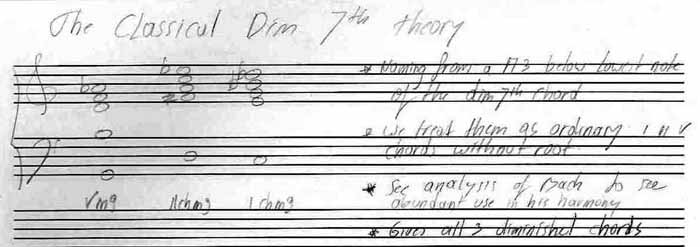 The Classical Dim 7th theory
* Naming from a M3 below lowest note
of the dim 7th chord
* we treat them as ordinary I II V
chords without root
* See analysis of Bach to see
abundant use in his harmony
Vm9 IIchm9 Ichm9
* Gives all 3 diminished chords